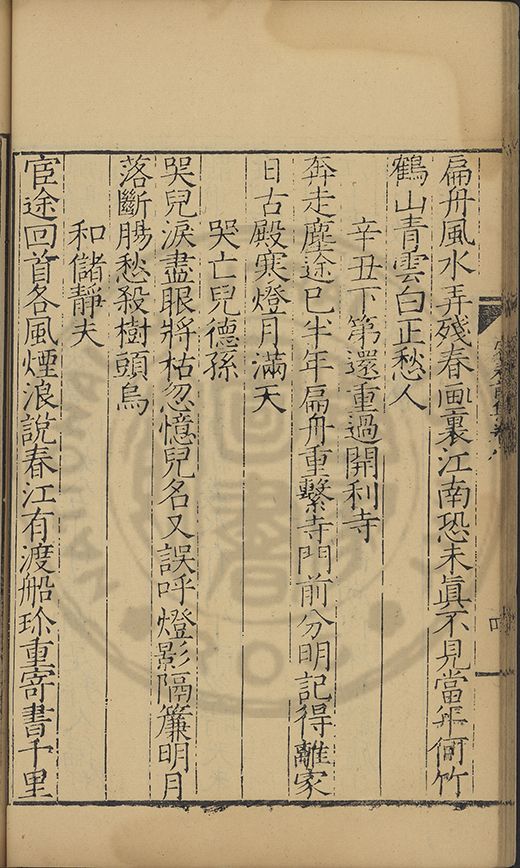 扁舟風水弄殘春画裏江南恐未眞不見當年何竹
鶴山青雲白正愁人
辛丑下第還重過開利寺
奔走塵途已半年扁舟重繫寺門前分明記得離家
日古殿寒燈月滿天
哭亡兒德孫
哭兒淚盡眼將枯忽憶兒名又誤呼燈影隔簾明月
落斷腸愁殺樹頭烏
和儲靜夫
宦途回首各風煙浪說春江有渡船珎重寄書千里
四